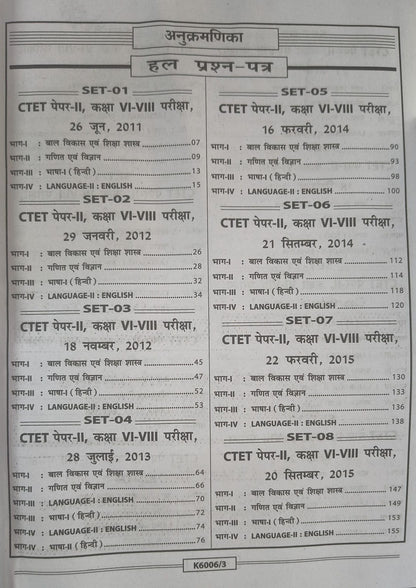 अनुक्रमणिका
हल प्रश्न-पत्र
SET-01
CTET पेपर-II, कक्षा VI-VIII परीक्षा,
26 जून, 2011
भाग-I : बाल विकास एवं शिक्षा शास्त्र 07
भाग-II : गणित एवं विज्ञान 09
भाग-III : भाषा-I (हिन्दी) 13
भाग-IV : LANGUAGE-II : ENGLISH 15
SET-02
CTET पेपर-II, कक्षा VI-VIII परीक्षा,
29 जनवरी, 2012
भाग-I : बाल विकास एवं शिक्षा शास्त्र 26
भाग-II : गणित एवं विज्ञान 28
भाग-III : भाषा-I (हिन्दी) 32
भाग-IV : LANGUAGE-II : ENGLISH 34
SET-03
CTET पेपर-II, कक्षा VI-VIII परीक्षा,
18 नवम्बर, 2012
भाग-I : बाल विकास एवं शिक्षा शास्त्र 45
भाग-II : गणित एवं विज्ञान 47
भाग-III : भाषा-I (हिन्दी) 52
भाग-IV : LANGUAGE-II : ENGLISH 53
SET-04
CTET पेपर-II, कक्षा VI-VIII परीक्षा,
28 जुलाई, 2013
भाग-I : बाल विकास एवं शिक्षा शास्त्र 64
भाग-II : गणित एवं विज्ञान 66
भाग-III : LANGUAGE-I : ENGLISH 70
भाग-III : भाषा-I (हिन्दी) 72
भाग-IV : LANGUAGE-II : ENGLISH 74
भाग-IV : भाषा-II (हिन्दी) 76
SET-05
CTET पेपर-II, कक्षा VI-VIII परीक्षा,
16 फरवरी, 2014
भाग-I : बाल विकास एवं शिक्षा शास्त्र 90
भाग-II : गणित एवं विज्ञान 93
भाग-III : भाषा-I (हिन्दी) 98
भाग-IV : LANGUAGE-II : ENGLISH 100
SET-06
CTET पेपर-II, कक्षा VI-VIII परीक्षा,
21 सितम्बर, 2014
भाग-I : बाल विकास एवं शिक्षा शास्त्र 112
भाग-II : गणित एवं विज्ञान 114
भाग-III : भाषा-I (हिन्दी) 118
भाग-IV : LANGUAGE-II : ENGLISH 120
SET-07
CTET पेपर-II, कक्षा VI-VIII परीक्षा,
22 फरवरी, 2015
भाग-I : बाल विकास एवं शिक्षा शास्त्र 130
भाग-II : गणित एवं विज्ञान 133
भाग-III : भाषा-I (हिन्दी) 136
भाग-IV : LANGUAGE-II : ENGLISH 138
SET-08
CTET पेपर-II, कक्षा VI-VIII परीक्षा,
20 सितम्बर, 2015
भाग-I : बाल विकास एवं शिक्षा शास्त्र 147
भाग-II : गणित एवं विज्ञान 149
भाग-III : भाषा-I (हिन्दी) 153
भाग-IV : LANGUAGE-II : ENGLISH 155
K6006/3